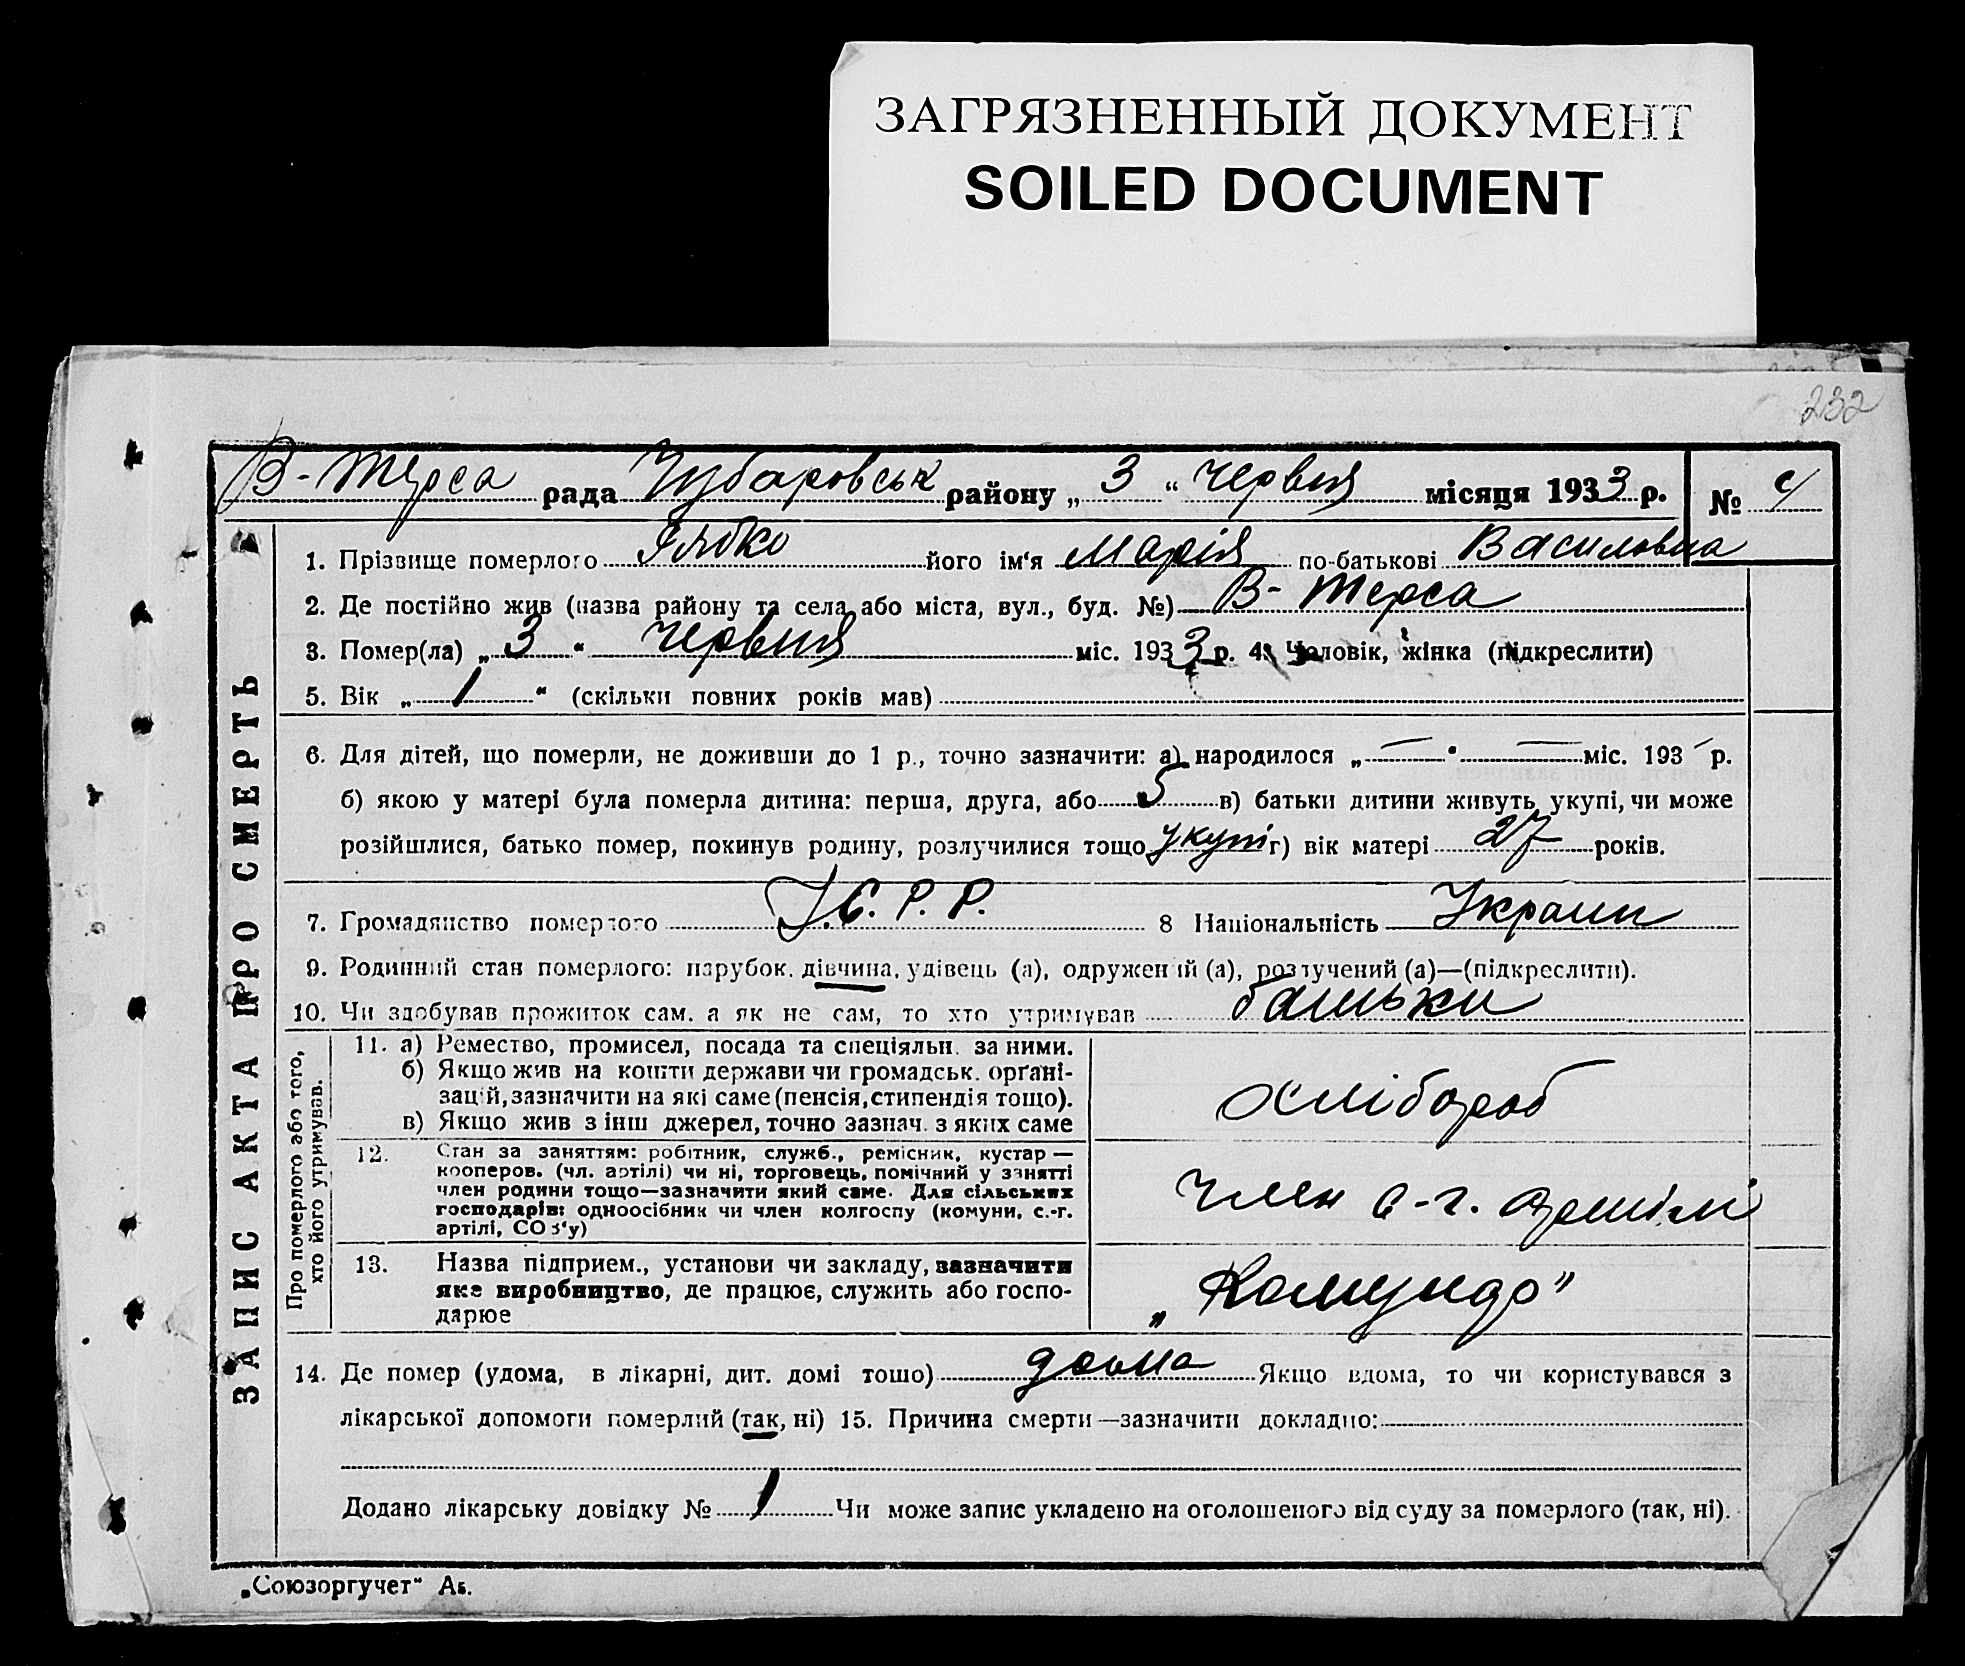 ЗАГРЯЗНЕННЫЙ ДОКУМЕНТ
SOILED DOCUMENT
232
В-Терса рада Чубаровськ району „ 3 “ червня місяця 1933 р. №
ЗАПИС АКТА ПРО СМЕРТЬ
1. Прізвище померлого його ім‘я Марія по-батькові Василовна
2. Де постійно жив (назва району та села або міста, вул., буд. №) В-Терса
3. Помер(ла) „ 3 “ червня міс. 1933 р. 4. Чоловік, жінка (підкреслити)
5. Вік „ 1 “ (скільки повних років мав)
6. Для дітей, що померли, не доживши до 1 р., точно зазначити: а) народилося „ — “ — міс. 193 р.
б) якою у матері була померла дитина: перша, друга, або 5 в) батьки дитини живуть укупі, чи може
розійшлися, батько помер, покинув родину, розлучилися тощо укупі г) вік матері 27 років.
7. Громадянство померлого У.С.Р.Р. 8 Національність Украин
9. Родинний стан померлого: парубок, дівчина, удівець (а), одружений (а), розлучений (а)—(підкреслити).
10. Чи здобував прожиток сам, а як не сам, то хто утримував батьки
Про померлого або того, хто його утримував.
11. а) Ремество, промисел, посада та спеціяльн. за ними.
б) Якщо жив на кошти держави чи громадськ. орґані-
зацій, зазначити на які саме (пенсія, стипендія тощо).
в) Якщо жив з інш джерел, точно зазнач. з яких саме
хлібороб
12. Стан за заняттям: робітник, служб., ремісник, кустар —
кооперов. (чл. артілі) чи ні, торговець, помічний у занятті
член родини тощо—зазначити який саме. Для сільських
господарів: одноосібник чи член колгоспу (комуни, с.-г.
артілі, СОЗ‘у)
член с-г. артілі
13. Назва підприєм., установи чи закладу, зазначити
яке виробництво, де працює, служить або госпо-
дарює
14. Де помер (удома, в лікарні, дит. домі тощо) дома Якщо вдома, то чи користувався з
лікарської допомоги померлий (так, ні) 15. Причина смерти—зазначити докладно:
Додано лікарську довідку № Чи може запис укладено на оголошеного від суду за померлого (так, ні).
„Союзоргучет“ Аб.